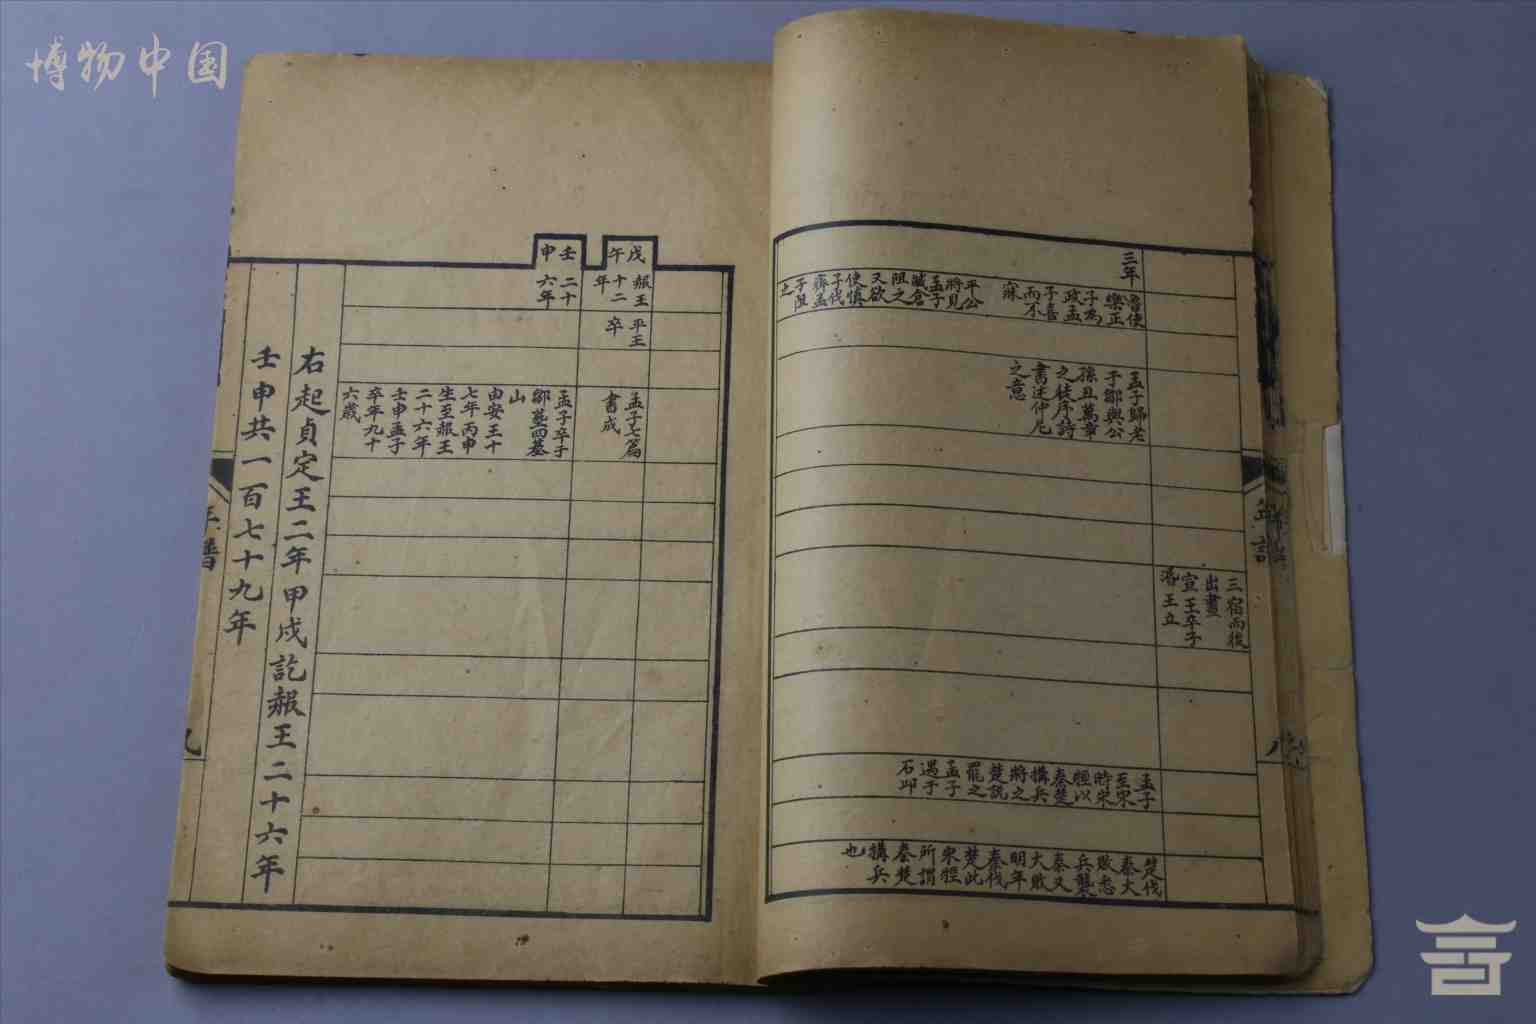 博物中国
三宿而後
出晝
宣王卒子
湣王立
三年
魯使
樂正
子為
政孟
子喜
而不
寐
平公
將見
孟子
臧倉
阻之
又欲
使慎
子伐
齊孟
子阻
之
孟子歸老
于鄒與公
孫丑萬章
之徒序詩
書述仲尼
之意
孟子
至宋
時宋
牼以
秦楚
搆兵
將之
楚說
罷之
孟子
遇于
石邱
楚伐
秦大
敗悉
兵襲
秦又
大敗
明年
秦伐
楚此
宋牼
所謂
秦楚
搆兵
也
戊
午
赧王
十二
年
平王
卒
孟子七篇
書成
壬
申
二十
六年
孟子卒于
鄒葬四基
山
由安王十
七年丙申
生至赧王
二十六年
壬申孟子
卒年九十
六歲
右起貞定王二年甲戌訖赧王二十六年
壬申共一百七十九年
年譜
九